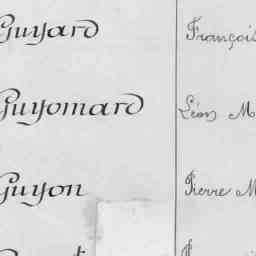 Guyard François
Guyomard Léon M
Guyon Pierre M